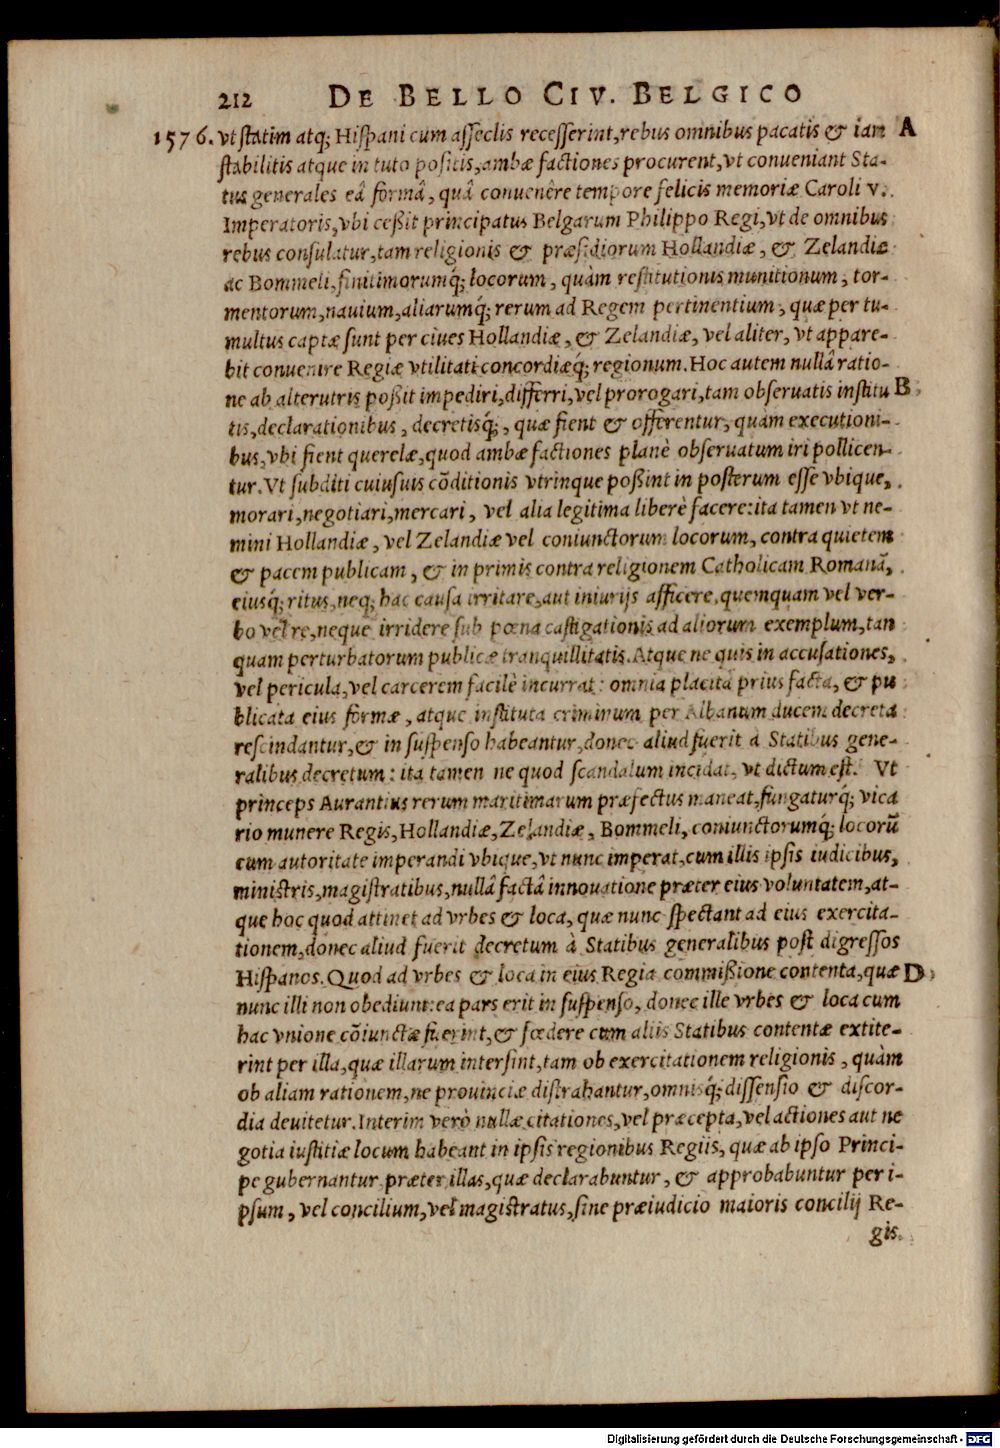 212 DE BELLO CIV. BELGICO
1576. vt statim atq; Hispani cum asseclis recesserint, rebus omnibus pacatis & iam A
stabilitis atque in tuto positis, ambæ factiones procurent, vt conveniant Sta-
tus generales eâ formâ, quâ convenêre tempore felicis memoriæ Caroli v.
Imperatoris, vbi ceßit principatus Belgarum Philippo Regi, vt de omnibus
rebus consulatur, tam religionis & præsidiorum Hollandiæ, & Zelandiæ
ac Bommeli, finitimorumq́; locorum, quàm restitutionis munitionum, tor-
mentorum, navium, aliarumq́; rerum ad Regem pertinentium, quæ per tu-
multus captæ sunt per ciues Hollandiæ, & Zelandiæ, vel aliter, vt appare-
bit convenire Regiæ vtilitati concordiæq́; regionum. Hoc autem nullâ ratio-
ne ab alterutris poßit impediri, differri, vel prorogari, tam obseruatis institu B
tis, declarationibus, decretisq́;, quæ fient & offerentur, quàm executioni-
bus, vbi fient querelæ, quod ambæ factiones planè obseruatum iri pollicen-
tur. Vt subditi cuiusuis cõditionis vtrinque poßint in posterum esse vbique,
morari, negotiari, mercari, vel alia legitima liberè facere: ita tamen vt ne-
mini Hollandiæ, vel Zelandiæ vel coniunctorum locorum, contra quietem
& pacem publicam, & in primis contra religionem Catholicam Romanã,
eiusq́; ritus, neq; hac causa irritare, aut iniurijs afficere, quemquam vel ver-
bo vel re, neque irridere sub pœna castigationis ad aliorum exemplum, tan
quam perturbatorum publicæ tranquillitatis. Atque ne quis in accusationes,
vel pericula, vel carcerem facilè incurrat: omnia placita prius facta, & pu
blicata eius formæ, atque instituta criminum per Albanum ducem decreta
rescindantur, & in suspenso habeantur, donec aliud fuerit à Statibus gene-
ralibus decretum: ita tamen ne quod scandalum incidat, vt dictum est. Vt
princeps Aurantius rerum maritimarum præfectus maneat, fungaturq́; vica
rio munere Regis, Hollandiæ, Zelandiæ, Bommeli, coniunctorumq́; locorũ
cum autoritate imperandi vbique, vt nunc imperat, cum illis ipsis iudicibus,
ministris, magistratibus, nullâ factâ innouatione præter eius voluntatem, at-
que hoc quod attinet ad vrbes & loca, quæ nunc spectant ad eius exercita-
tionem, donec aliud fuerit decretum à Statibus generalibus post digressos
Hispanos. Quod ad vrbes & loca in eius Regia commißione contenta, quæ D
nunc illi non obediunt: ea pars erit in suspenso, donec ille vrbes & loca cum
hac vnione cõiunctæ fuerint, & fœdere cum aliis Statibus contentæ extite-
rint per illa, quæ illarum intersint, tam ob exercitationem religionis, quàm
ob aliam rationem, ne prouinciæ distrahantur, omnisq́; dissensio & discor-
dia deuitetur. Interim verò nullæ citationes, vel præcepta, vel actiones aut ne
gotia iustitiæ locum habeant in ipsis regionibus Regiis, quæ ab ipso Princi-
pe gubernantur præter illas, quæ declarabuntur, & approbabuntur per i-
psum, vel concilium, vel magistratus, sine præiudicio maioris concilij Re-
gis.
Digitalisierung gefördert durch die Deutsche Forschungsgemeinschaft - DFG